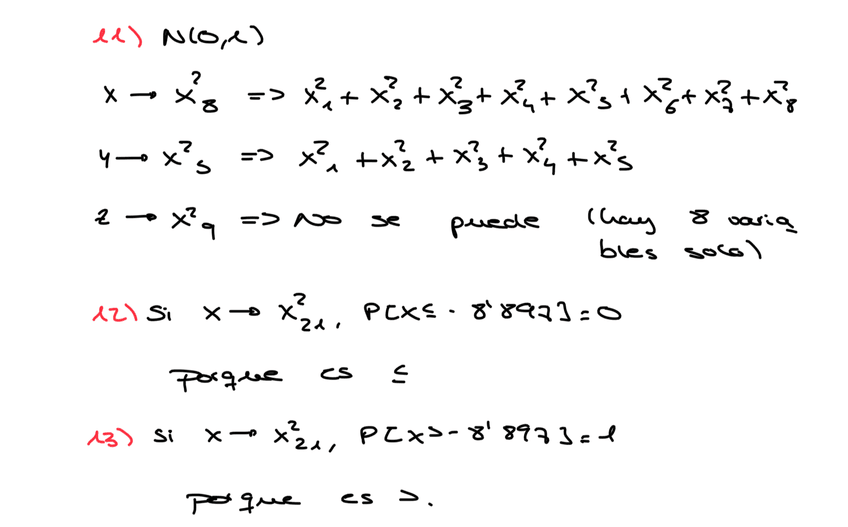 11) N(0,1)
X → X²₈ => X²₁ + X²₂ + X²₃ + X²₄ + X²₅ + X²₆ + X²₇ + X²₈
Y → X²₅ => X²₁ + X²₂ + X²₃ + X²₄ + X²₅
Z → X²₉ => No se puede (hay 8 varia
bles solo)
12) Si X → X²₂₁, P[X ≤ - 8'897] = 0
Porque es ≤
13) Si X → X²₂₁, P[X > - 8'897] = 1
Porque es >.